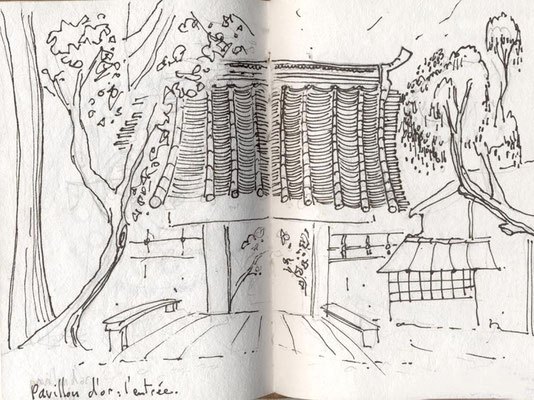 Pavillon d'or : l'entrée.